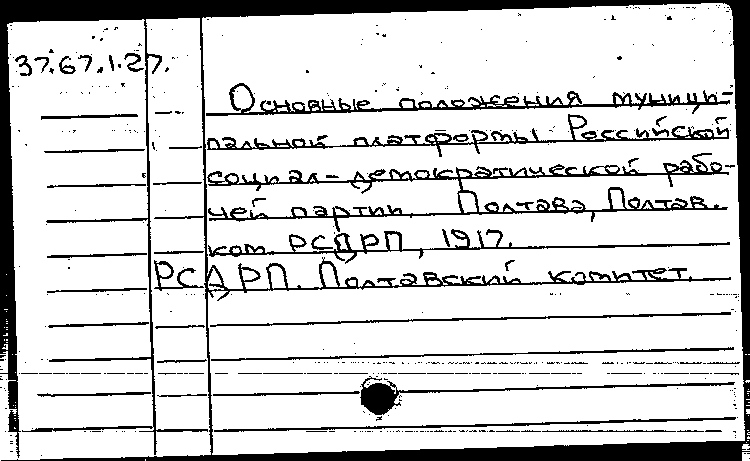 37.67.1.27.
Основные положения муници-
пальной платформы Российской
социал-демократической рабо-
чей партии. Полтава, Полтав.
ком. РСДРП, 1917.
РСДРП. Полтавский комитет.